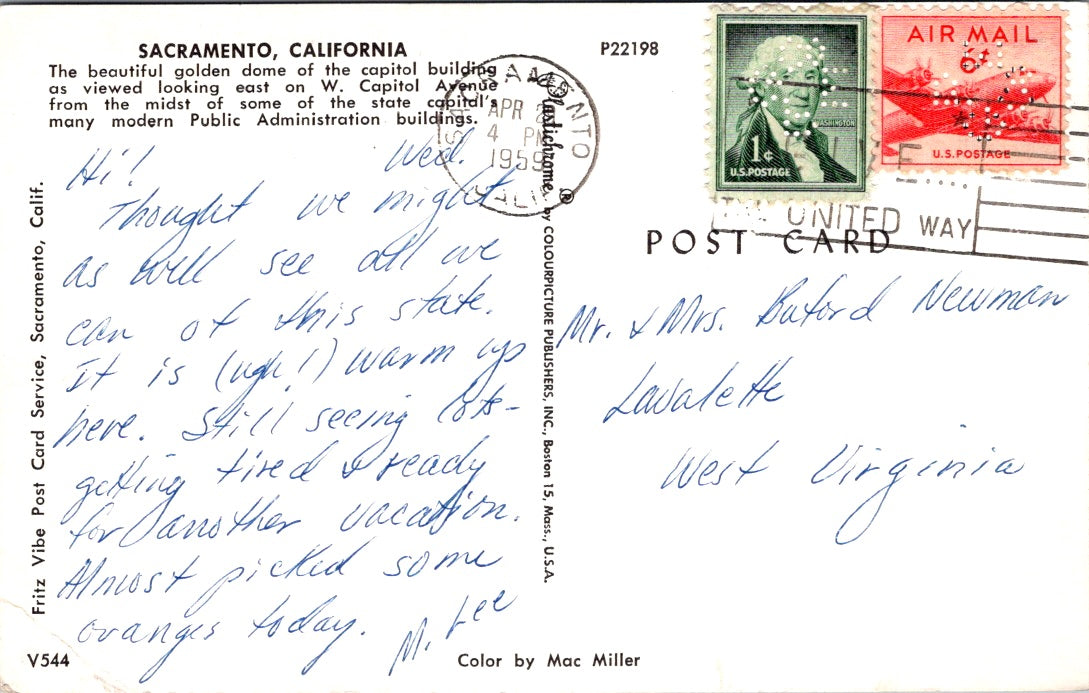 SACRAMENTO, CALIFORNIA
The beautiful golden dome of the capitol building
as viewed looking east on W. Capitol Avenue
from the midst of some of the state capital's
many modern Public Administration buildings.
P22198
SACRAMENTO
APR
4 PM
1959
CALIF
WASHINGTON
1¢
U.S. POSTAGE
AIR MAIL
6¢
U.S. POSTAGE
THE UNITED WAY
POST CARD
Hi! Wed.
Thought we might
as well see all we
can of this state.
It is (ugh!) warm up
here. Still seeing lots-
getting tired & ready
for another vacation.
Almost picked some
oranges today.
M. Lee
Mr. & Mrs. Buford Newman
Lavalette
West Virginia
Fritz Vibe Post Card Service, Sacramento, Calif.
Plastichrome ® by COLOURPICTURE PUBLISHERS, INC., Boston 15, Mass., U.S.A.
V544
Color by Mac Miller